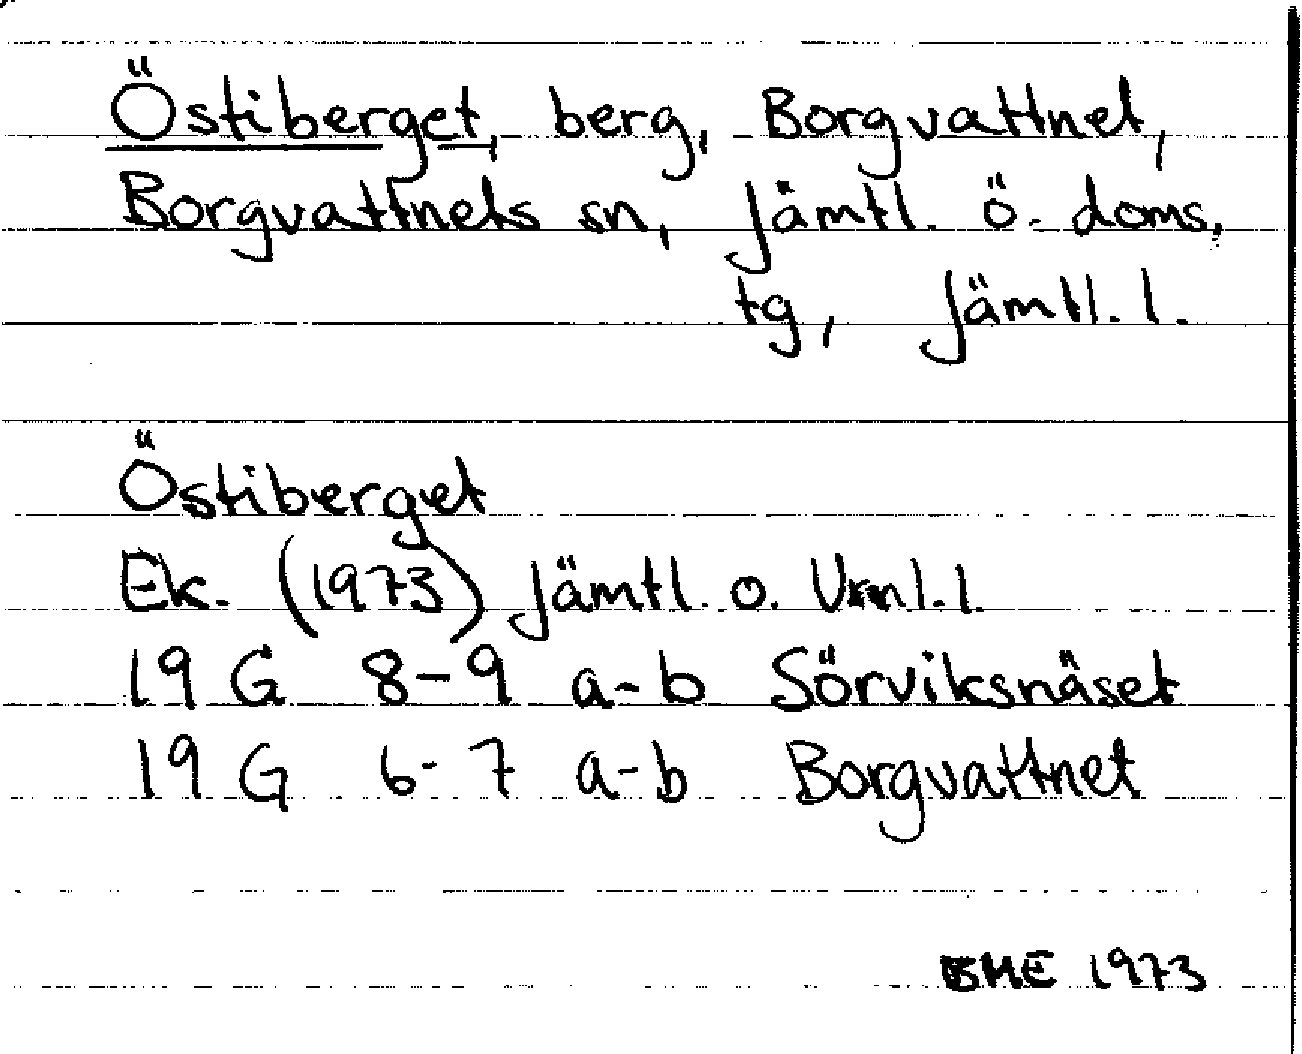 Östiberget, berg, Borgvattnet,
Borgvattnets sn, Jämtl. ö. doms.
tg, Jämtl. l.
Östiberget
Ek. (1973) Jämtl. o. Vrml. l.
19 G 8-9 a-b Sörviksnäset
19 G 6-7 a-b Borgvattnet
BME 1973